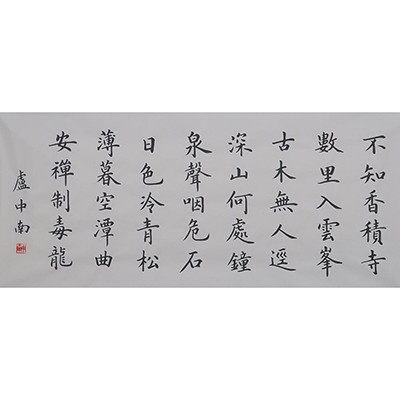 不知香積寺
數里入雲峯
古木無人逕
深山何處鐘
泉聲咽危石
日色冷青松
薄暮空潭曲
安禪制毒龍
盧中南